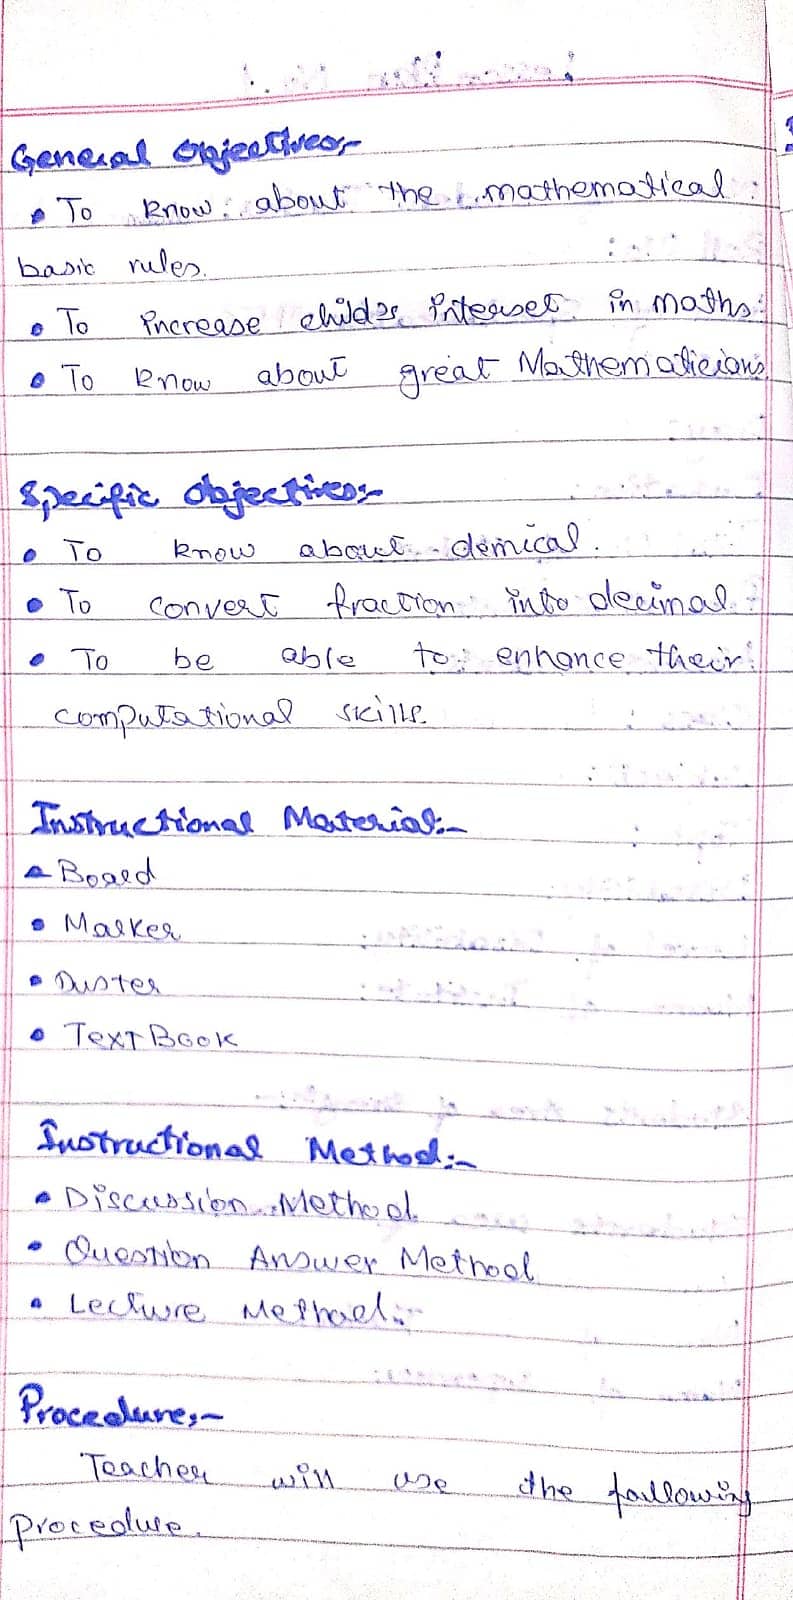 General Objectives:-
• To know about the mathematical
basic rules.
• To increase childs interset in maths.
• To know about great Mathematicians
Specific Objectives:-
• To know about demical.
• To convert fraction into decimal
• To be able to enhance their
computational skills.
Instructional Material:-
• Board
• Marker
• Duster
• Text Book
Instructional Method:-
• Discussion Method.
• Question Answer Method
• Lecture Method.
Procedure:-
Teacher will use the following
procedure.